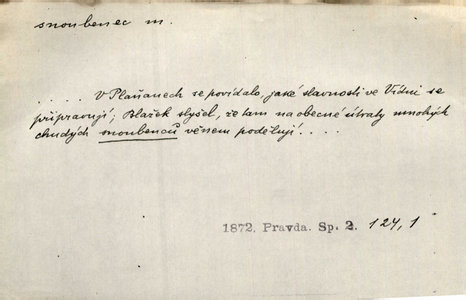 snoubenec m.
..... V Plaňanech se povídalo, jaké slavnosti ve Vídni se
připravují; Blažek slyšel, že tam na obecné útraty mnohých
chudých snoubenců věnem podělují....
1872, Pravda. Sp. 2. 124, 1